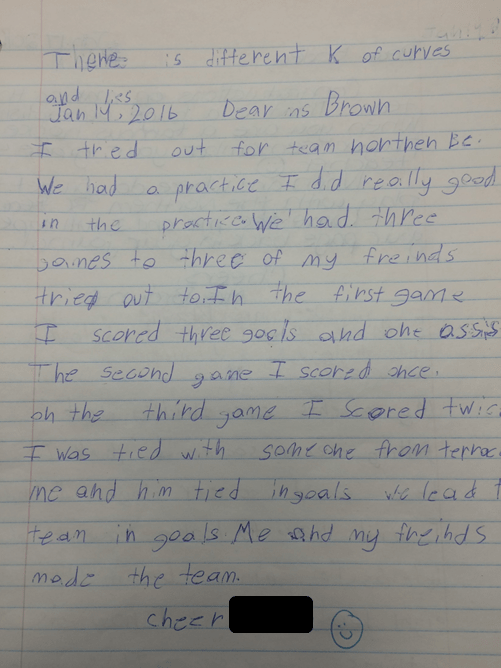 There is different K of curves
and lies
Jan 14, 2016 Dear ms Brown
I tred out for team northen BC.
We had a practice I did really good
in the practice. We had three
games to three of my freinds
tried out to. In the first game
I scored three goals and one assis
The second game I scored once.
on the third game I scored twic
I was tied with someone from terrac
me and him tied in goals we lead t
team in goals. Me and my freinds
made the team.
cheer